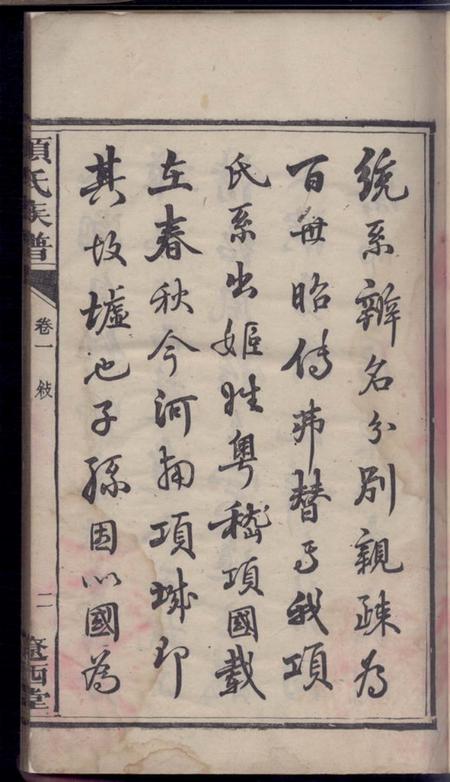 統系辨名分別親疎為
百世昭傳弗替焉我項
氏系出姬姓粵稽項國載
在春秋今河南項城即
其故墟也子孫因以國為
項氏族譜
卷一
敍
二